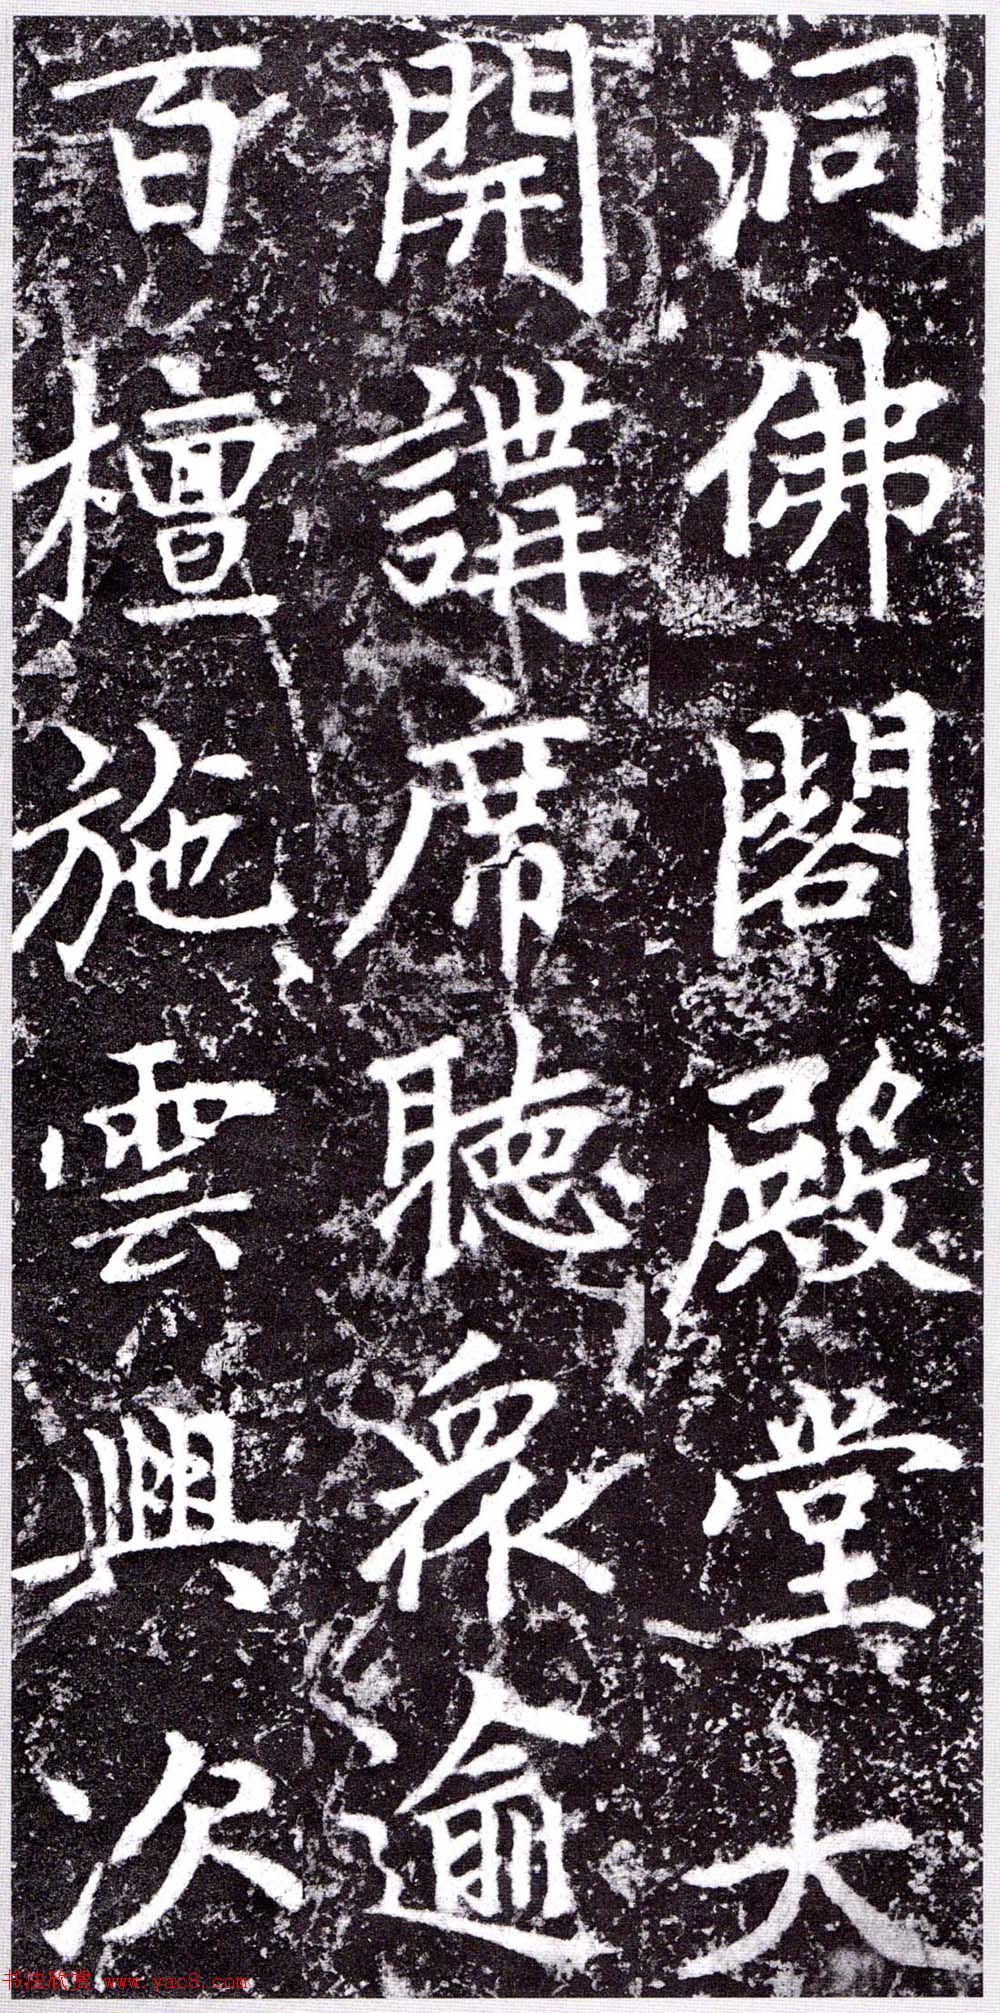 洞佛閣殿堂大
開講席聽眾逾
百檀施雲興次
书法欣赏 www.yac8.com